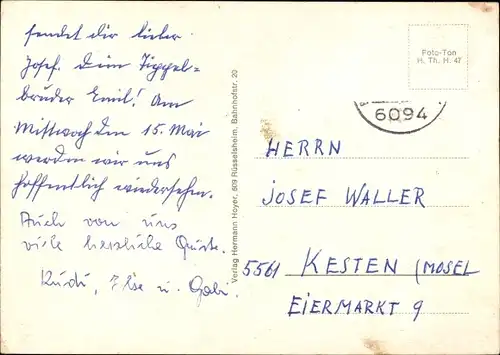 sendet dir lieber
Josef. Dein Tippel=
bruder Emil! Am
Mittwoch den 15. Mai
werden wir uns
hoffentlich wiedersehn.
Auch von uns
viele herzliche Grüße.
Rudi, Else u. Gabi.
Verlag Hermann Hoyer, 609 Rüsselsheim, Bahnhofstr. 20
Foto-Ton
H. Th. H. 47
6094
HERRN
JOSEF WALLER
5561 KESTEN (MOSEL
EIERMARKT 9